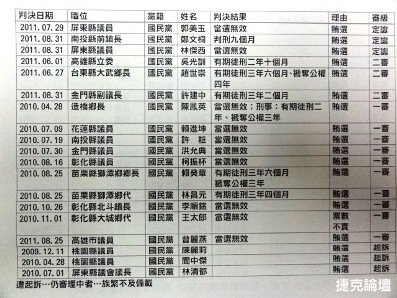 判決日期 職位 黨籍 姓名 判決結果 理由 審級
2011.07.29 屏東縣議員 國民黨 郭美玉 當選無效 賄選 定讞
2011.08.31 南投縣前鎮長 國民黨 鄭文桐 判刑九個月 賄選 定讞
2011.08.31 屏東縣議員 國民黨 林傑西 當選無效 賄選 定讞
2011.06.01 高雄縣立委 國民黨 吳光訓 有期徒刑二年十個月 賄選 二審
2011.06.27 台東縣大武鄉長 國民黨 趙世崇 有期徒刑三年六個月、褫奪公權四年 賄選 二審
2011.08.31 金門縣副議長 國民黨 許建中 有期徒刑三年二個月 賄選 二審
2010.04.28 造橋鄉長 國民黨 陳鳳英 當選無效：刑事：有期徒刑二年、褫奪公權三年 賄選 二審
2010.07.09 花蓮縣議員 國民黨 賴進坤 當選無效 賄選 一審
2010.07.19 南投縣議員 國民黨 許 當選無效 賄選 一審
2010.07.30 金門縣議員 國民黨 洪允典 當選無效 賄選 一審
2010.08.16 彰化縣議員 國民黨 柯振杯 當選無效 賄選 一審
2010.08.25 苗栗縣獅潭鄉鄉長 國民黨 賴癸章 有期徒刑三年六個月 褫奪公權三年 賄選 一審
2010.08.25 苗栗縣獅潭鄉代 國民黨 林昌元 有期徒刑三年四個月 賄選 一審
2010.10.26 彰化縣北斗鎮長 國民黨 李順銘 當選無效 賄選 一審
2010.11.01 彰化縣大城鄉代 國民黨 王太郎 當選無效 票數不實 一審
2011.08.25 高雄市議員 國民黨 曾麗燕 當選無效 賄選 一審
2009.12.11 桃園縣議員 國民黨 陳麗莉 賄選 起訴
2010.04.28 桃園縣議員 國民黨 閻中傑 賄選 起訴
2010.07.01 屏東縣議會議長 國民黨 林清都 賄選 起訴
遭起訴…仍審理中者…族繁不及備載
捷克論壇